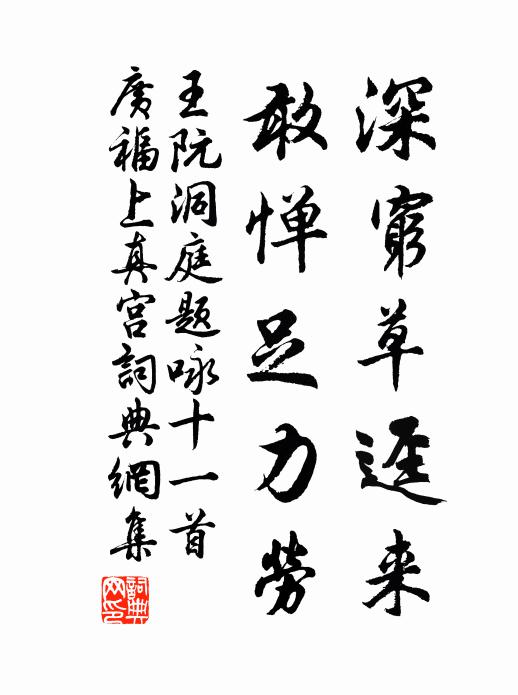 深窮草迳来
敢惮足力勞
王阮洞庭题咏十一首
廣福上真宫詞典網集
詞典网印